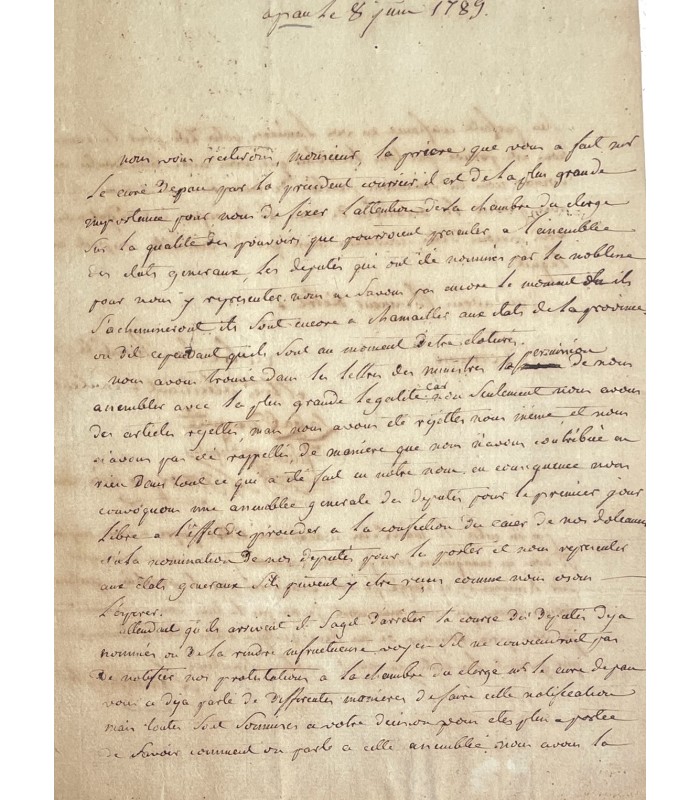 a pau le 8 juin 1789.
nous vous reiterons, monsieur, la priere que vous a fait mr
le curé de pau par le president courrier, il est de la plus grande
importance pour nous de fixer l'attention de la chambre du clergé
sur la qualité des pouvoirs que pourroient presenter a l'assemblée
des etats generaux, les deputés qui ont été nommés par la noblesse
pour nous y representer, nous ne savons pas encore le moment ou ils
s'achemineront, ils sont encore a chamailler aux etats de la province
on dit cependant qu'ils sont au moment d'etre cloturés.
nous avons trouvé dans les lettres des ministres la permission de nous
assembler avec la plus grande legalité car non seulement nous avons
des articles rejettés, mais nous avons été rejettés nous meme et nous
n'avons pas été rappellés, de maniere que nous n'avons contribué en
rien dans tout ce qui a été fait en notre nom, en consequence nous
convoquons une assemblée generale des deputés pour le premier jour
libre a l'effet de proceder a la confection du caier de nos doleances
et a la nomination de nos deputés pour le porter et nous representer
aux etats generaux s'ils peuvent y etre reçus comme nous osons
l'esperer.
attendant qu'ils arrivent il s'agit d'arreter la course des deputés deja
nommés ou de la rendre infructueuse, voyez s'il ne conviendroit pas
de notifier nos protestations a la chambre du clergé mr le curé de pau
vous a deja parlé de differentes manieres de faire cette notification
mais toutes sont soumises a votre decision vous etes plus a portée
de savoir comment on parle a cette assemblée. nous avons la